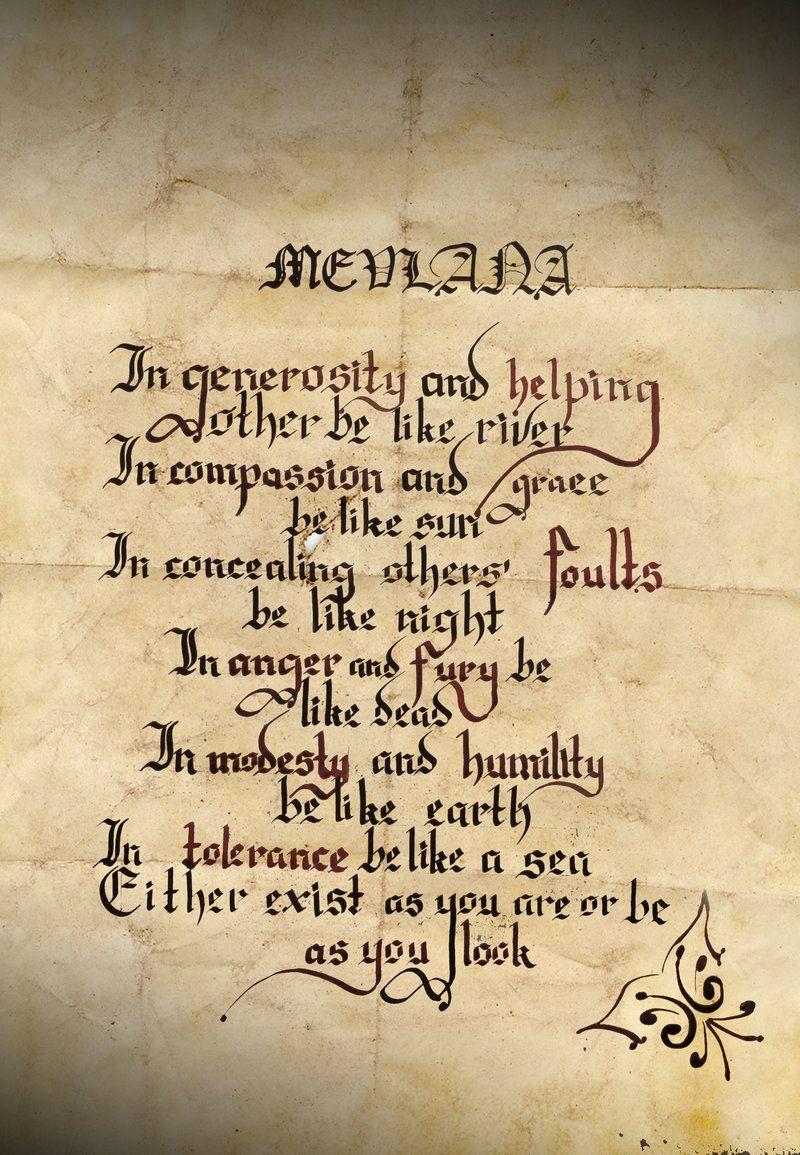 MEVLANA
In generosity and helping
other be like river
In compassion and graee
be like sun
In concealing others' foults
be like night
In anger and fury be
like dead
In modesty and humility
be like earth
In tolerance be like a sea
Either exist as you are or be
as you look